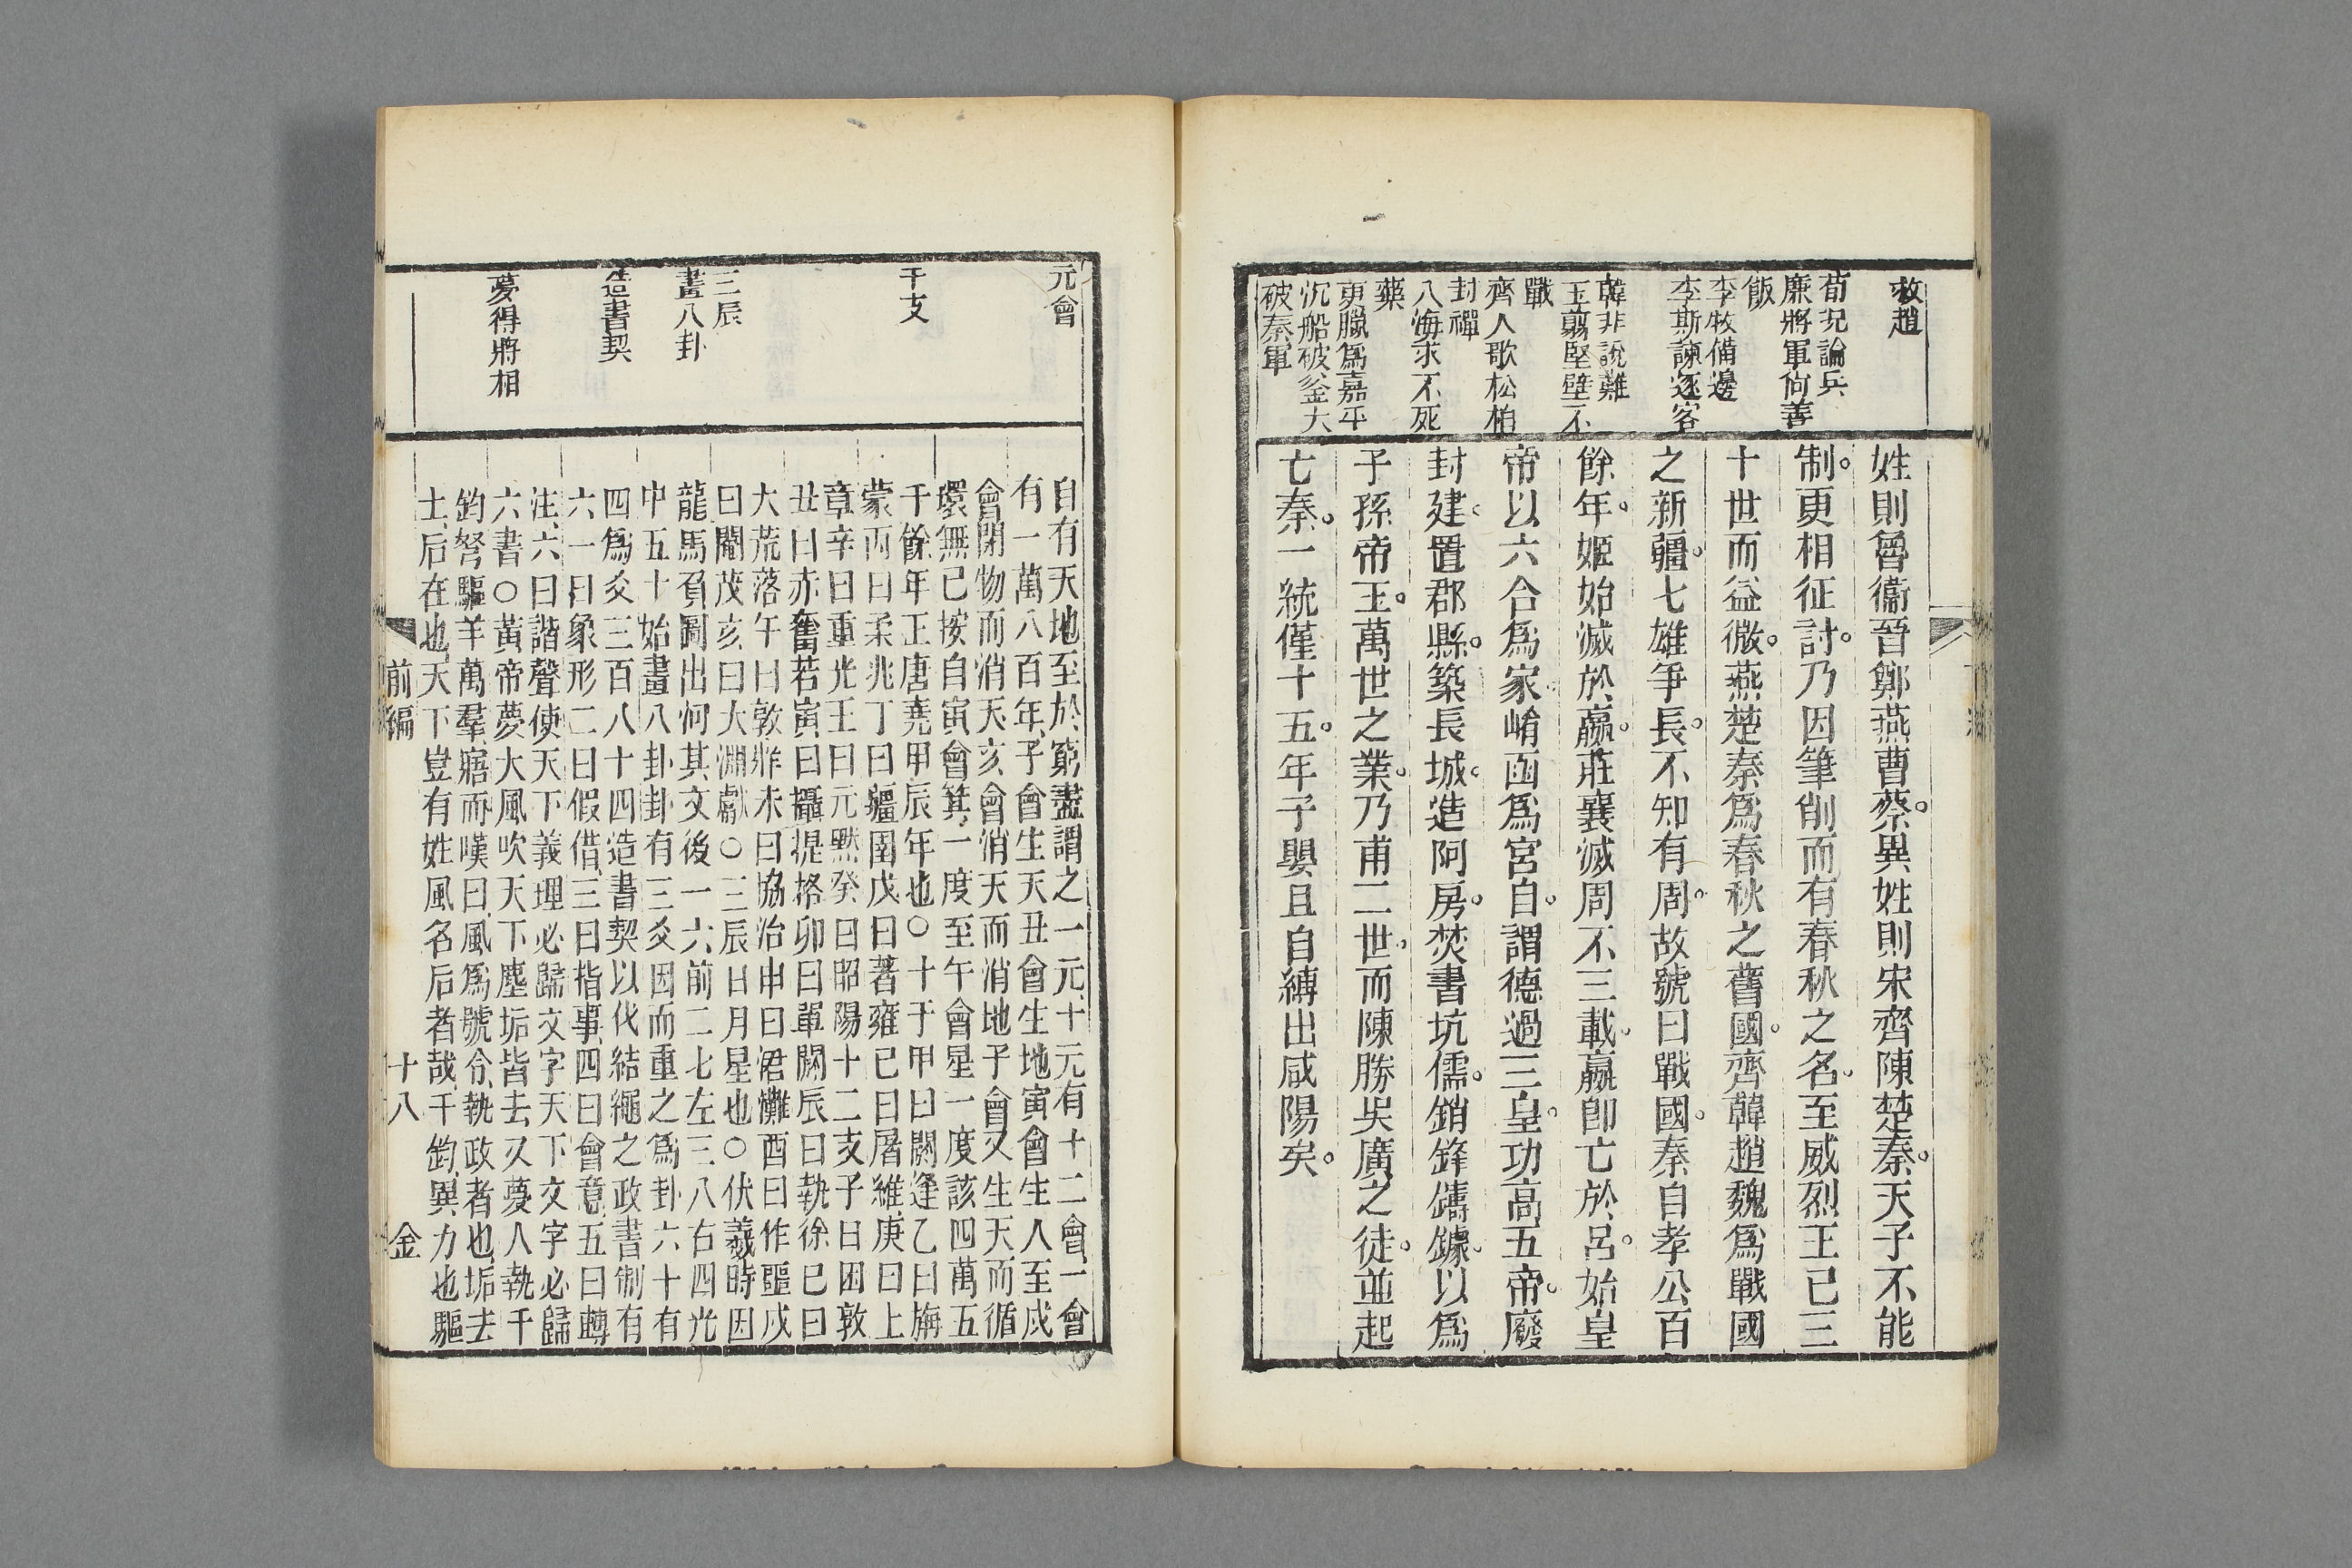 救趙
荀況論兵
廉將軍尚善
飯
李牧備邊
李斯諫逐客
韓非說難
王翦堅壁不
戰
齊人歌松柏
封禪
入海求不死
藥
更臘爲嘉平
沉船破釜大
破秦軍
姓則魯衞晉鄭燕曹蔡。異姓則宋齊陳楚秦。天子不能
制。更相征討。乃因筆削而有春秋之名。至威烈王已三
十世而益微。燕楚秦爲春秋之舊國。齊韓趙魏爲戰國
之新疆。七雄爭長。不知有周。故號曰戰國。秦自孝公百
餘年。姬始滅於嬴。莊襄滅周不三載。嬴卽亡於呂。始皇
帝以六合爲家。崤函爲宮。自謂德過三皇。功高五帝。廢
封建。置郡縣。築長城。造阿房。焚書坑儒。銷鋒鑄鐻。以爲
子孫帝王。萬世之業。乃甫二世。而陳勝吳廣之徒。並起
亡秦。一統僅十五。年子嬰且自縛出咸陽矣。
元會
干支
三辰
畫八卦
造書契
夢得將相
自有天地至於窮盡謂之一元、十元有十二會、一會
有一萬八百年、子會生天丑會生地寅會生人至戌
會閉物而消天亥會消天而消地子會又生天而循
環無已按自寅會箕一度至午會星一度該四萬五
千餘年正唐堯甲辰年也○十干甲曰閼逢乙曰旃
蒙丙曰柔兆丁曰疆圉戊曰著雍己曰屠維、庚曰上
章辛曰重光壬曰元黓癸曰昭陽十二支子曰困敦
丑曰赤奮若寅曰攝提格卯曰單閼辰曰執徐巳曰
大荒落午曰敦牂未曰協洽申曰涒灘酉曰作噩戌
曰閹茂亥曰大淵獻○三辰日月星也○伏羲時因
龍馬負圖出河其文後一六前二七左三八右四光
中五十始畫八卦卦有三爻因而重之爲卦六十有
四爲爻三百八十四造書契以代結繩之政書制有
六一曰象形二曰假借、三曰指事四曰會意、五曰轉
注、六曰諧聲使天下義理必歸文字天下文字必歸
六書○黃帝夢大風吹天下塵垢皆去又夢人執千
鈞弩驅羊萬羣、寤而嘆曰風爲號令、執政者也、垢去
土、后在也、天下豈有姓風名后者哉、千鈞、異力也驅
前編
十八
金